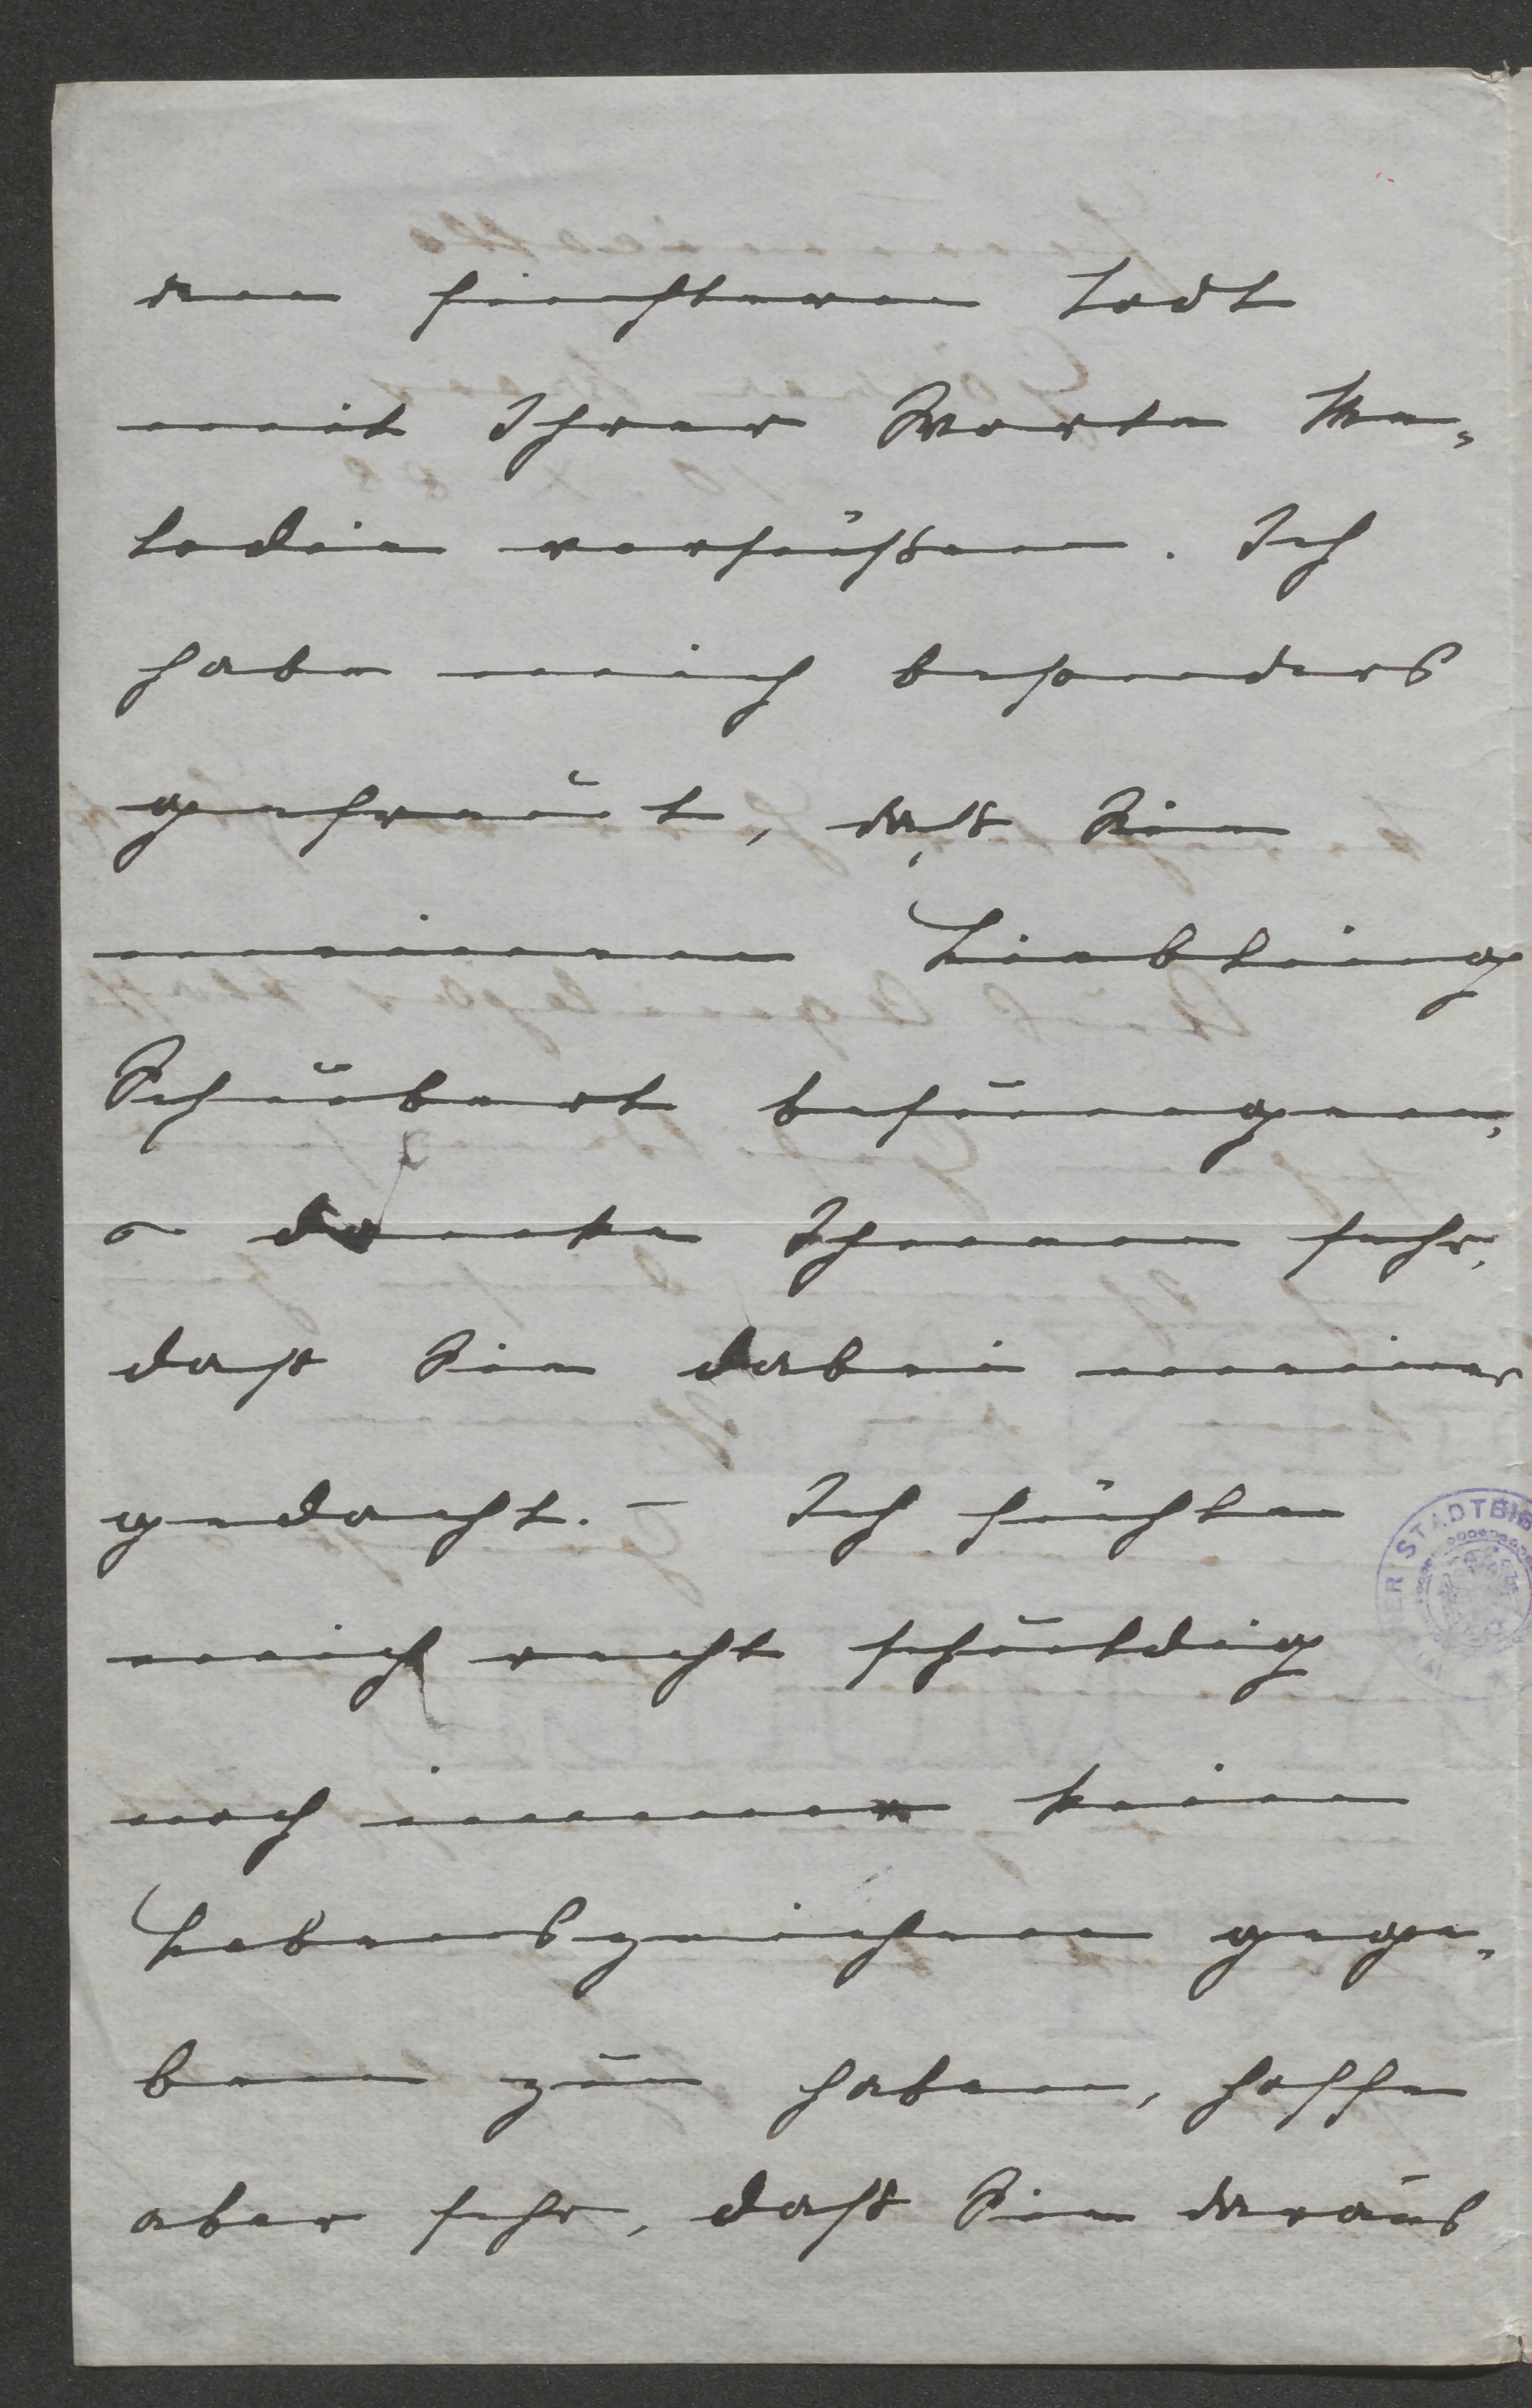 den finsteren Todt
mit Ihrer Worte Me„
lodie versüßen. Ich
habe mich besonders
gefreut, daß Sie
meinen Liebling
Schubert besungen,
& danke Ihnen sehr,
daß Sie dabei meiner
gedacht. – Ich fühle
mich recht schuldig
noch immer kein
Lebenszeichen gege„
ben zu haben, hoffe
aber sehr, daß Sie daraus
ER STADTBIB